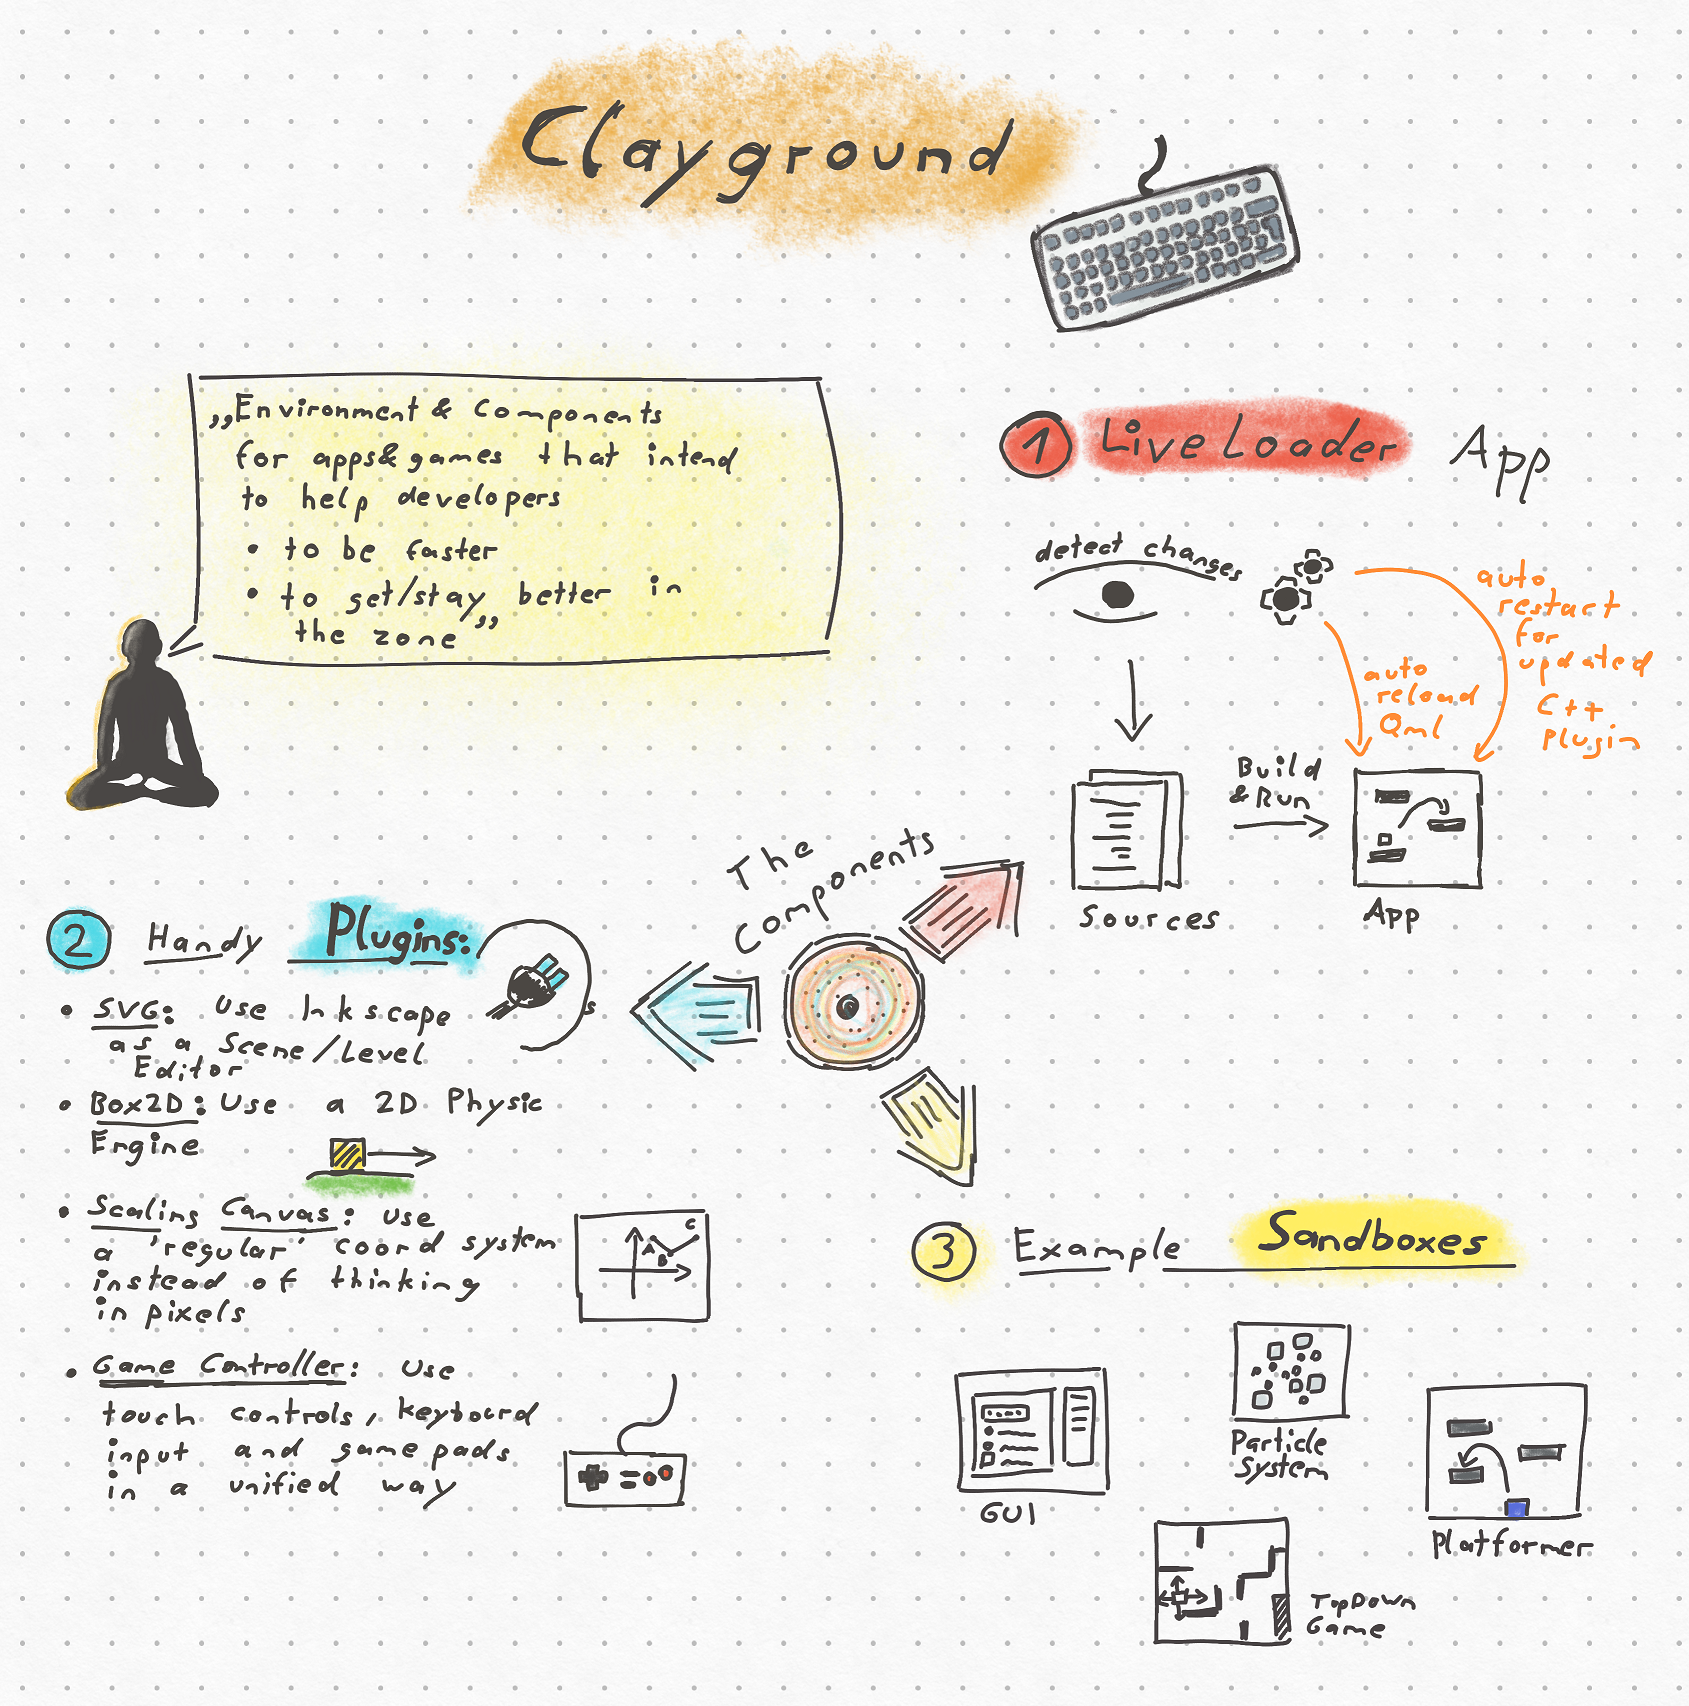 Clayground
„Environment & Components
for apps&games that intend
to help developers
• to be faster
• to get/stay better in
the zone”
1 LiveLoader App
detect changes
auto
restart
for
updated
C++
plugin
auto
reload
Qml
Build
& Run
Sources
App
The
Components
2 Handy Plugins:
• SVG: Use Inkscape
as a Scene/Level
Editor
• Box2D: Use a 2D Physic
Engine
• Scaling Canvas: Use
a 'regular' coord system
instead of thinking
in pixels
A B C
• Game Controller: Use
touch controls, keyboard
input and game pads
in a unified way
s
3 Example Sandboxes
GUI
Particle
System
Platformer
TopDown
Game